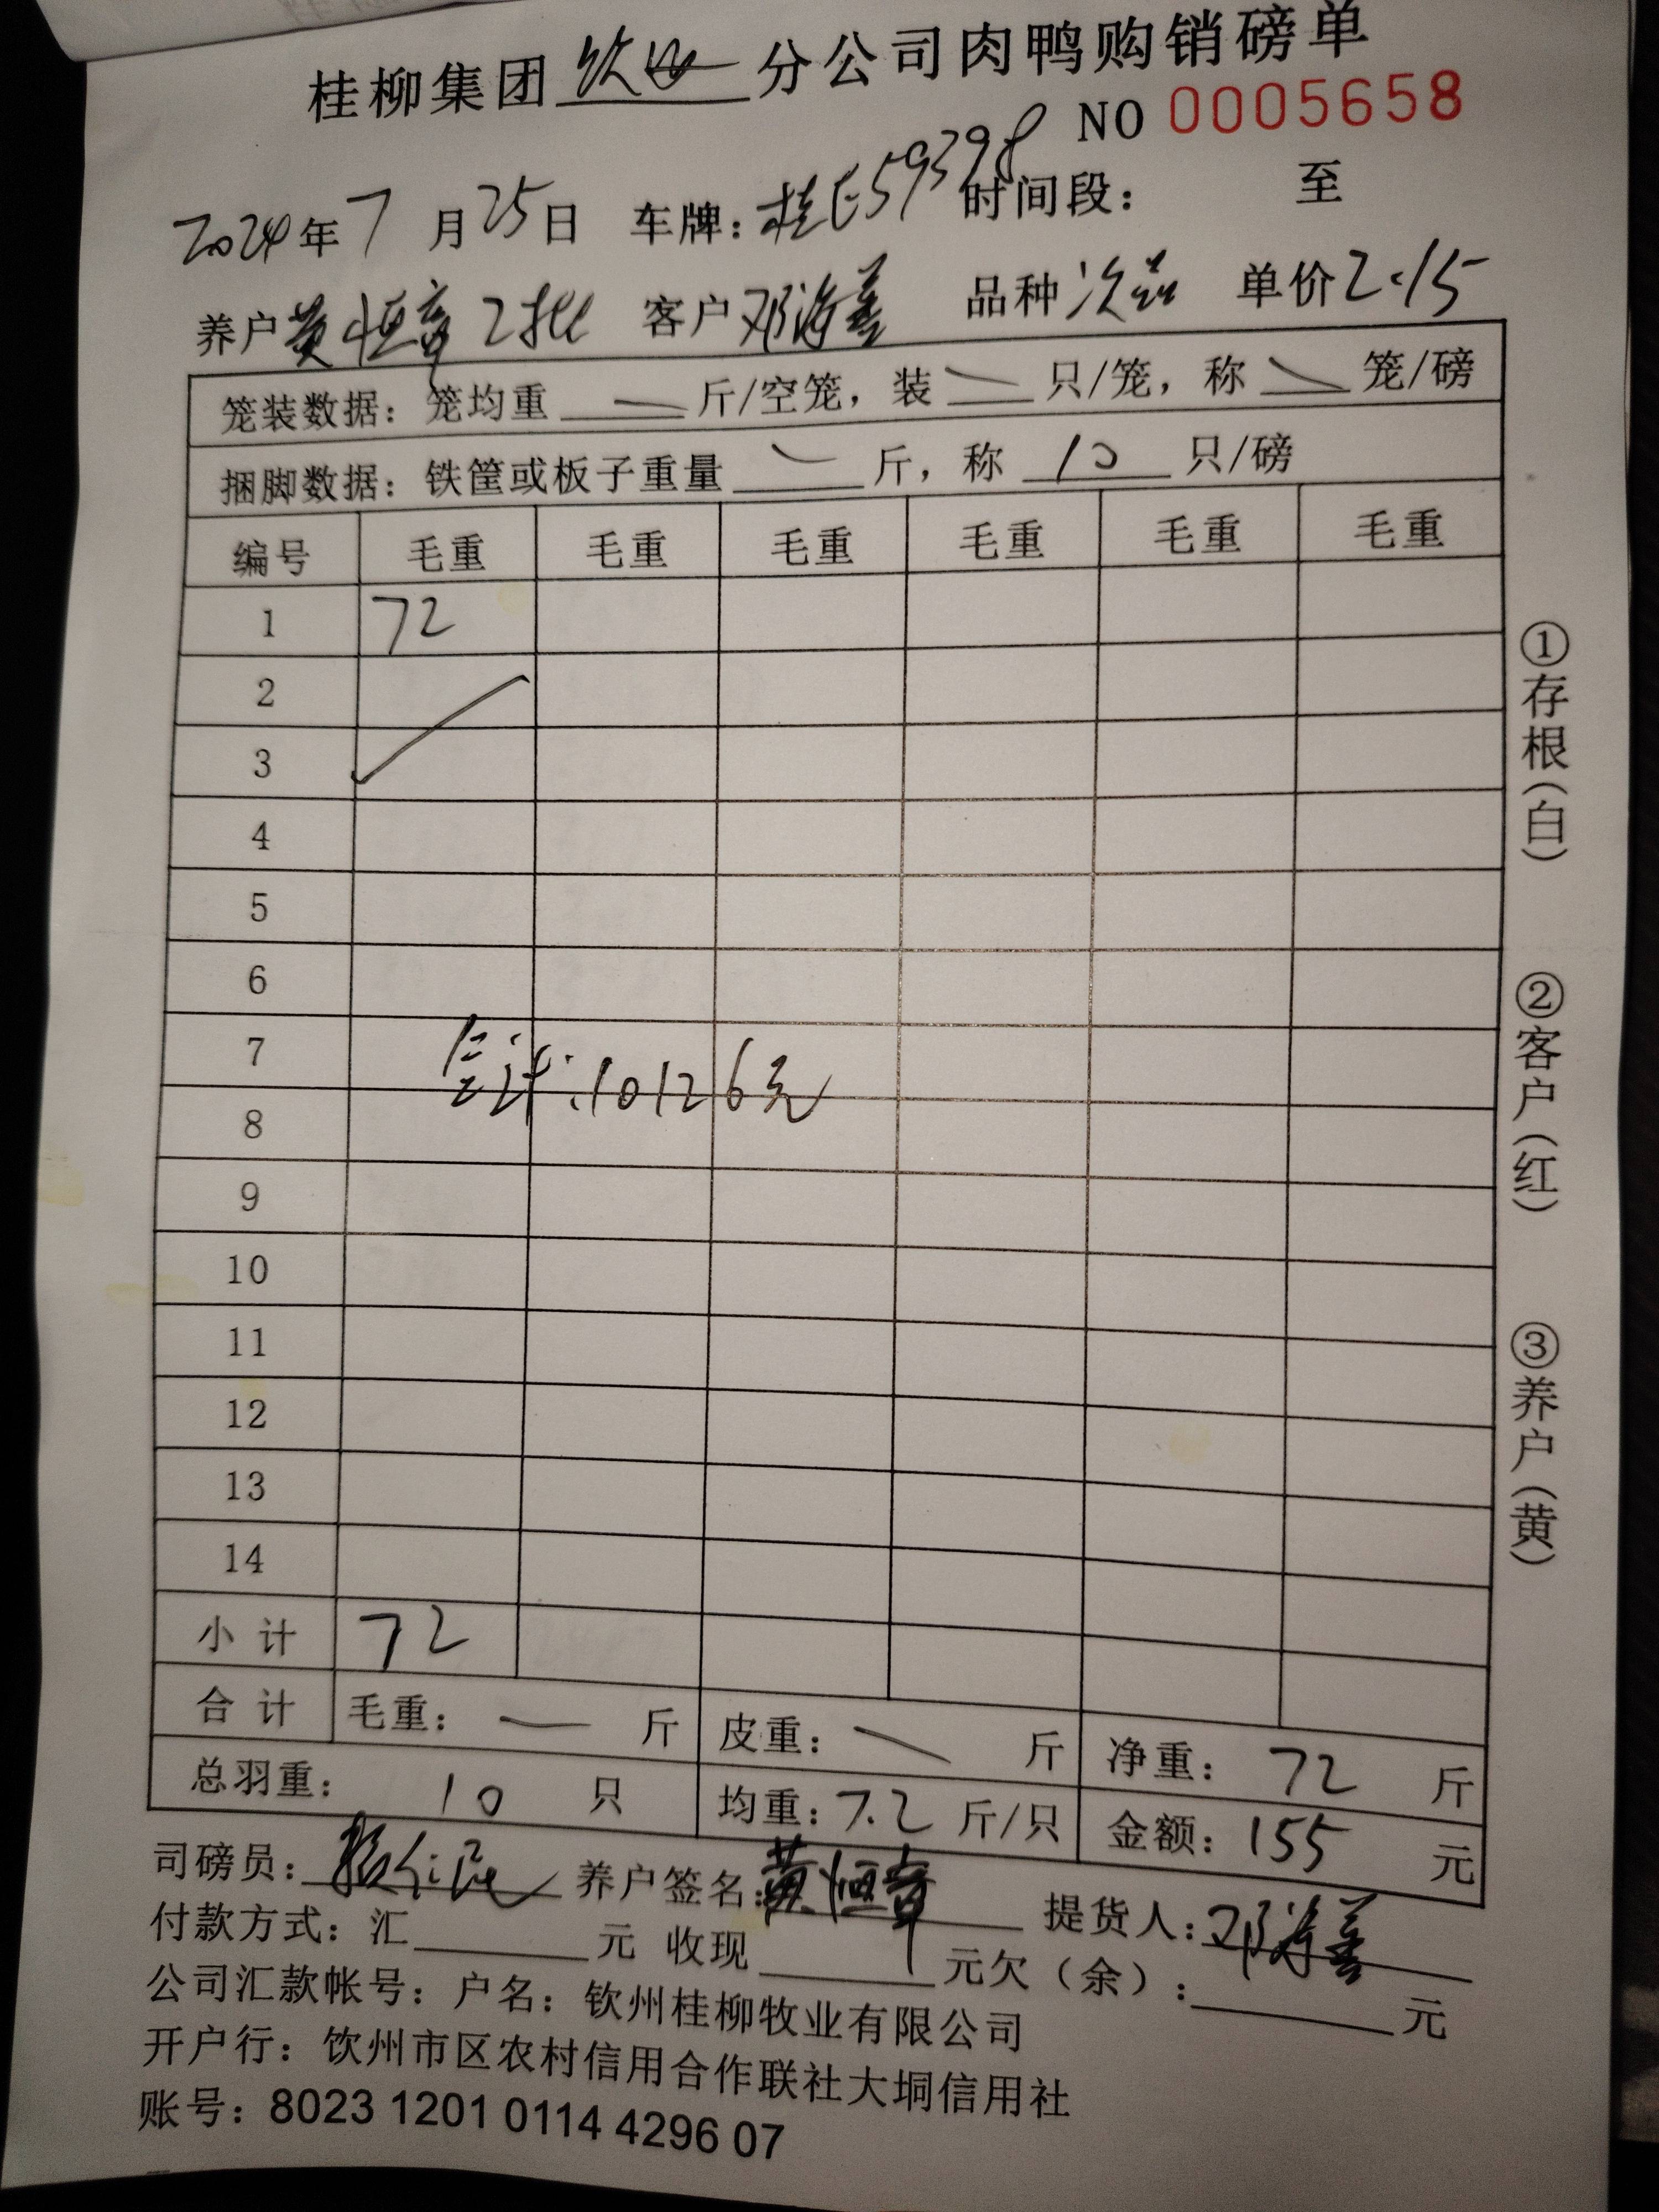 桂柳集团钦州分公司肉鸭购销磅单
NO 0005658
2024年7月25日 车牌:桂E59398 时间段: 至
养户黄恒章2批 客户邓海善 品种次品 单价2.15
笼装数据:笼均重 — 斤/空笼,装 — 只/笼,称 — 笼/磅
捆脚数据:铁筐或板子重量 — 斤,称 10 只/磅
编号 毛重 毛重 毛重 毛重 毛重 毛重
1 72
2
3
4
5
6
7
合计:10126元
8
9
10
11
12
13
14
小计 72
合计 毛重: — 斤 皮重: — 斤 净重: 72 斤
总羽重: 10 只 均重:7.2斤/只 金额:155 元
司磅员: 养户签名:黄恒章 提货人:邓海善
付款方式:汇 元 收现 元欠(余): 元
公司汇款帐号:户名:钦州桂柳牧业有限公司
开户行:钦州市区农村信用合作联社大垌信用社
账号:8023 1201 0114 4296 07
①存根(白)
②客户(红)
③养户(黄)